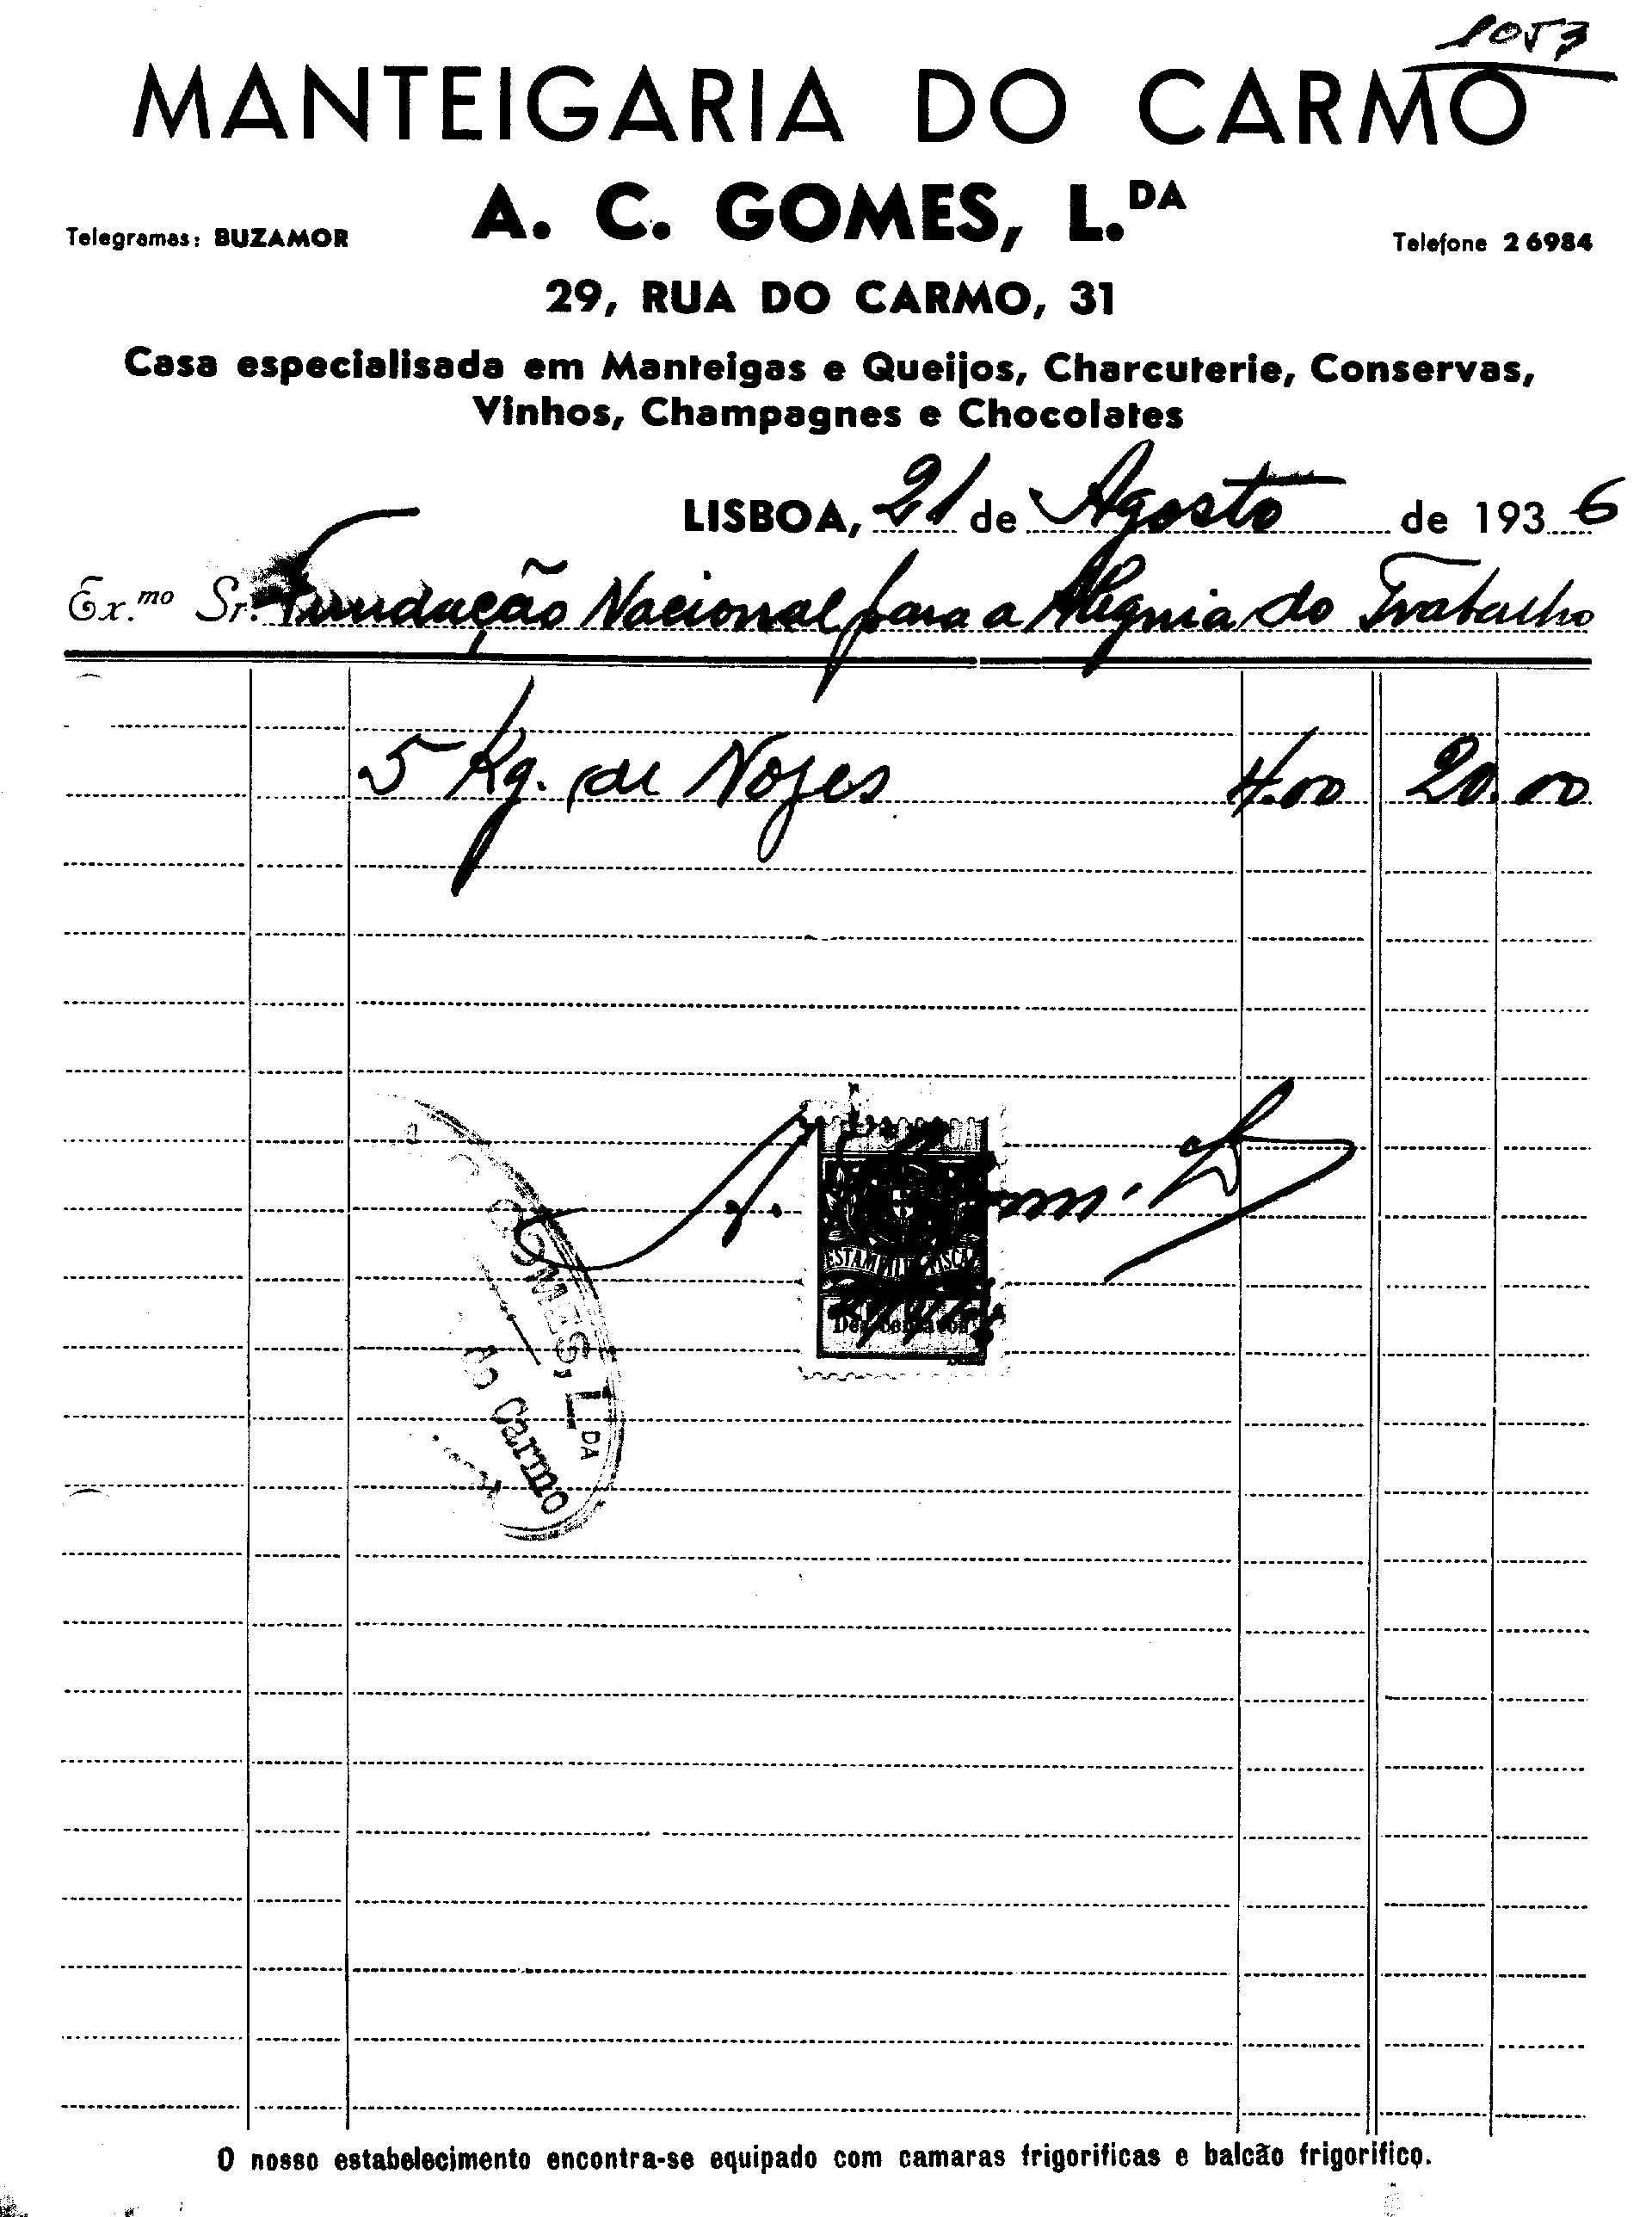 1053
MANTEIGARIA DO CARMO
A. C. GOMES, L.DA
Telegramas: BUZAMOR
Telefone 26984
29, RUA DO CARMO, 31
Casa especialisada em Manteigas e Queijos, Charcuterie, Conservas,
Vinhos, Champagnes e Chocolates
LISBOA, 21 de Agosto de 1936
Ex.mo Sr. Fundação Nacional para a Alegria do Trabalho
5 Kg. de Nozes 4.00 20.00
ESTAMPILHA FISCAL
Dez centavos
GOMES, L.DA
do Carmo
O nosso estabelecimento encontra-se equipado com camaras frigorificas e balcão frigorifico.